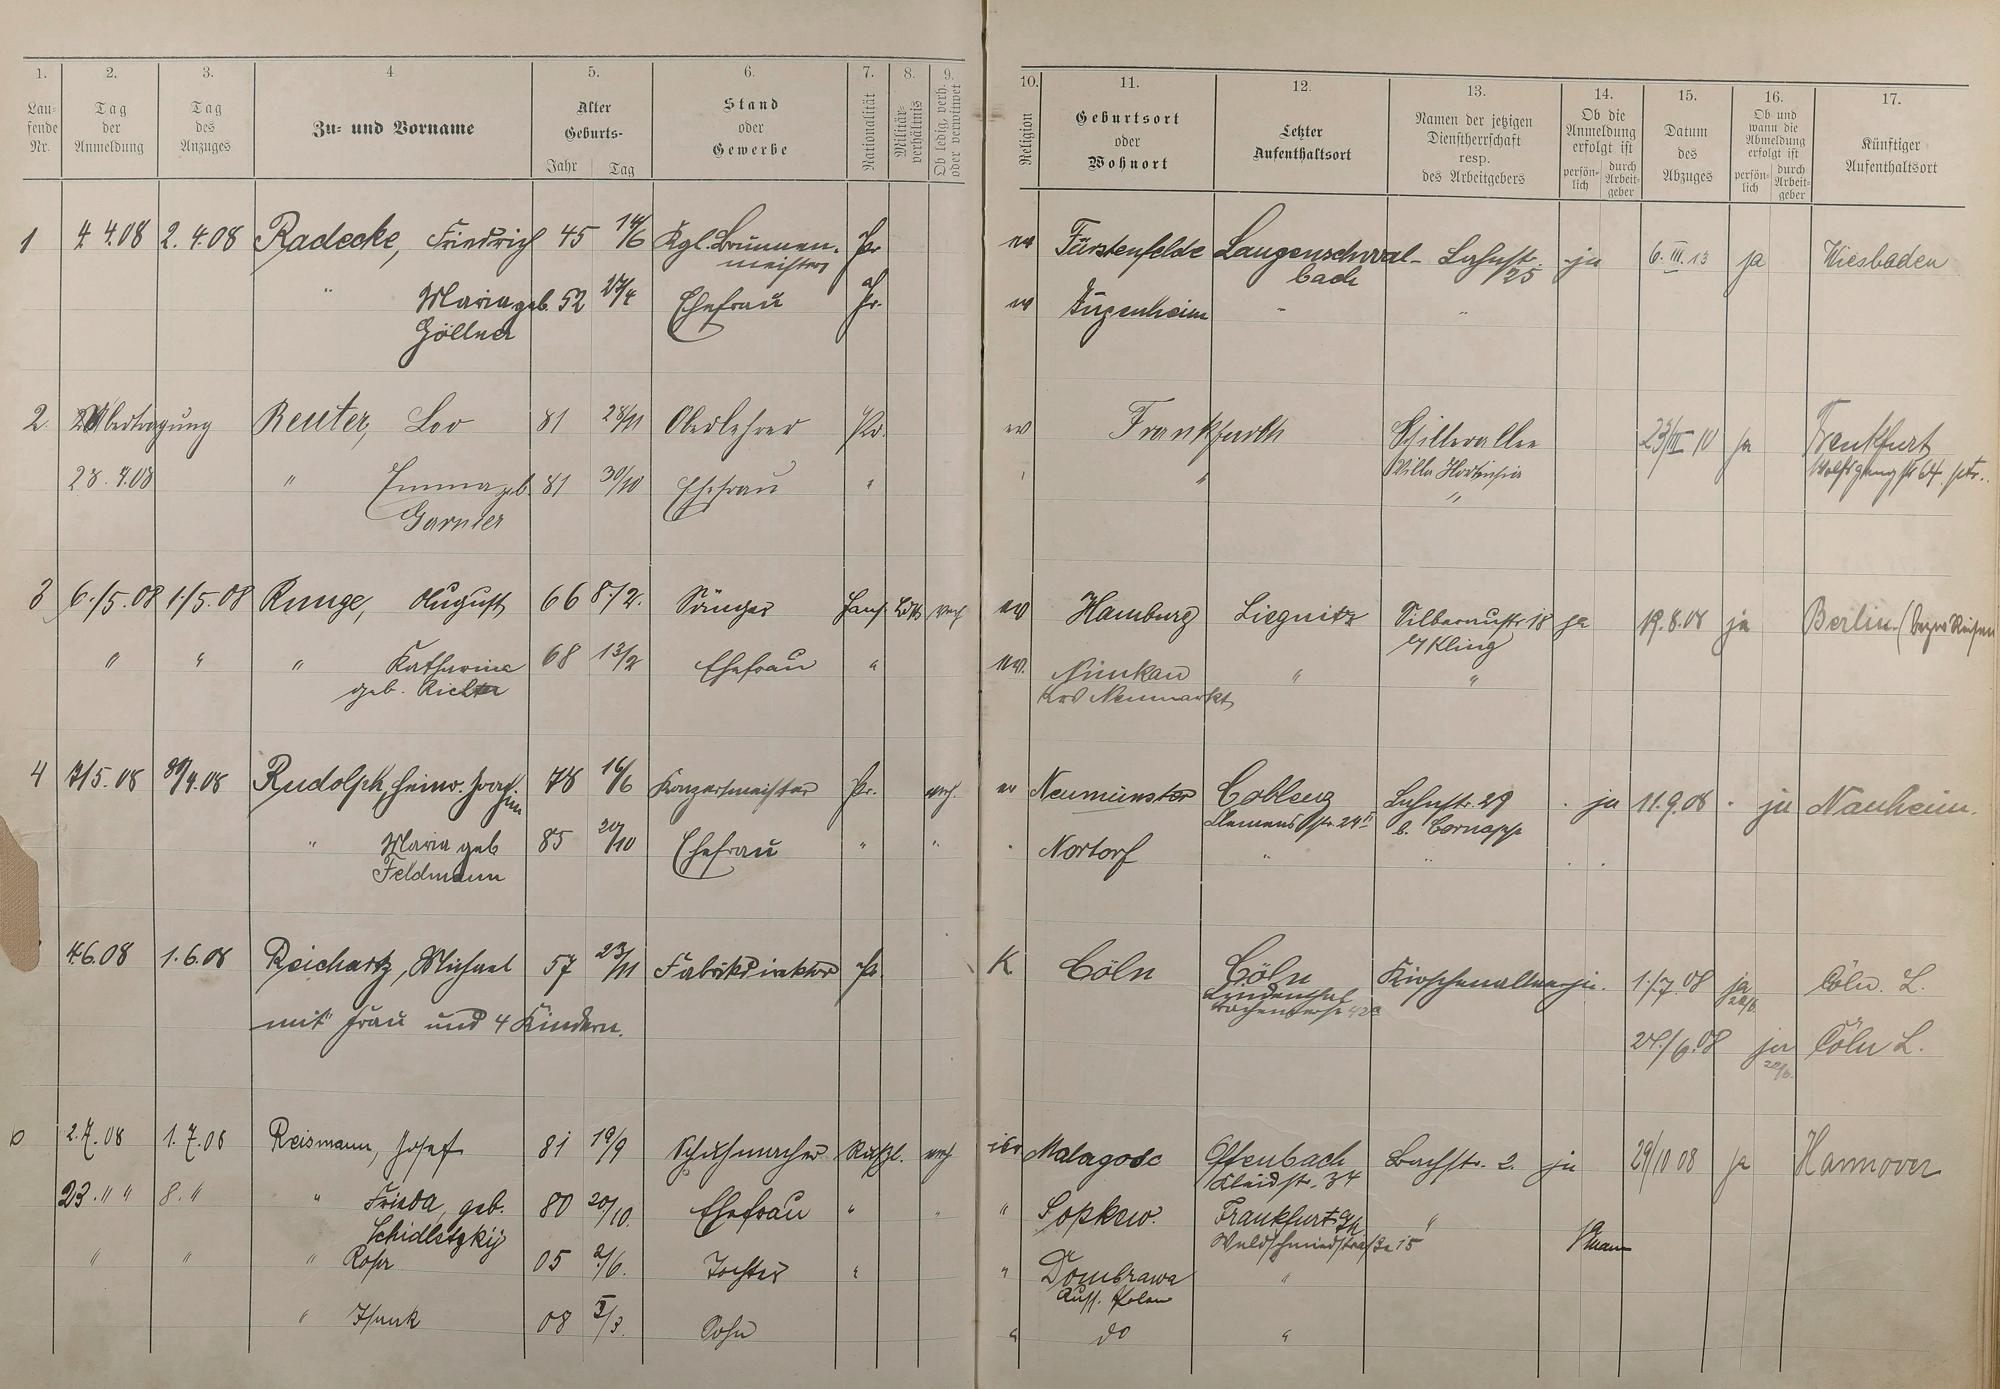 1. 2. 3. 4 5. 6. 7. 8. 9. 10. 11. 12. 13. 14. 15. 16. 17.
Lau-
fende
Nr.
Tag
der
Anmeldung
Tag
des
Anzuges
Zu- und Vorname
Alter
Geburts-
Jahr Tag
Stand
oder
Gewerbe
Nationalität
Militär-
verhältnis
Ob ledig, verh.
oder verwitwet
Religion
Geburtsort
oder
Wohnort
Letzter
Aufenthaltsort
Namen der jetzigen
Dienstherrschaft
resp.
des Arbeitgebers
Ob die
Anmeldung
erfolgt ist
persön-
lich
durch
Arbeit-
geber
Datum
des
Abzuges
Ob und
wann die
Abmeldung
erfolgt ist
persön-
lich
durch
Arbeit-
geber
Künftiger
Aufenthaltsort
1 4.4.08 2.4.08 Radecke, Friedrich 45 14/6 Kgl. Brunnen- Pr. ev Fürstenfelde Langenschwal- Lahnstr. ja 6.III.13 ja Wiesbaden
meister bach 25
" Maria geb. 52 27/4 Ehefrau Pr. ev Jugenheim " "
Göllner
2. Übertragung Reuter, Leo 81 28/11 Oberlehrer Pr. ev Frankfurth Schillerallee 23/III 10 ja Frankfurt
Villa Hortensia
28.4.08 " Emma geb. 81 30/10 Ehefrau " " " "
Garnier
3 6./5.08 1./5.08 Runge, August 66 8./2. Sänger Hans. Ldst verh ev Hamburg Liegnitz Silberaustr. 18 ja 19.8.08 ja Berlin
b/ Kling
" " " Katharine 68 13/2 Ehefrau " ev. Nimkau " "
geb. Richter Krs Neumarkt
4 7/5.08 30/4.08 Rudolph, Heinr. Joach. 78 16/6 Konzertmeister Pr. verh. ev Neumünster Coblenz Lahnstr. 29 ja 11.9.08 ja Nauheim.
him Clemensstr. 24 II b. Cornapp
" Maria geb 85 20/10 Ehefrau " " " Nortorf " "
Feldmann
4.6.08 1.6.08 Reichartz, Michael 57 23/11 Fabrikdirektor Pr. K Cöln Cöln Kirschenallee ja. 1./7.08 ja Cöln. L.
Lindenthal
mit Frau und 4 Kindern.
ja Cöln L.
6 2.7.08 1.7.08 Reismann, Josef 81 19/9 Schuhmacher Rußl. verh isr Malagosc Offenbach Bachstr. 2. ja 29/10 08 ja Hannover
str. 34
23. " " 8. " " Frieda, geb. 80 20/10. Ehefrau " " " Sopkow. Frankfurt a/M "
Schidletzkij Waldschmiedstraße 15
" " " Rosa 05 2/6. Tochter " " Dombrawa "
Russ. Polen
" Isaak 08 5/3. Sohn " do "